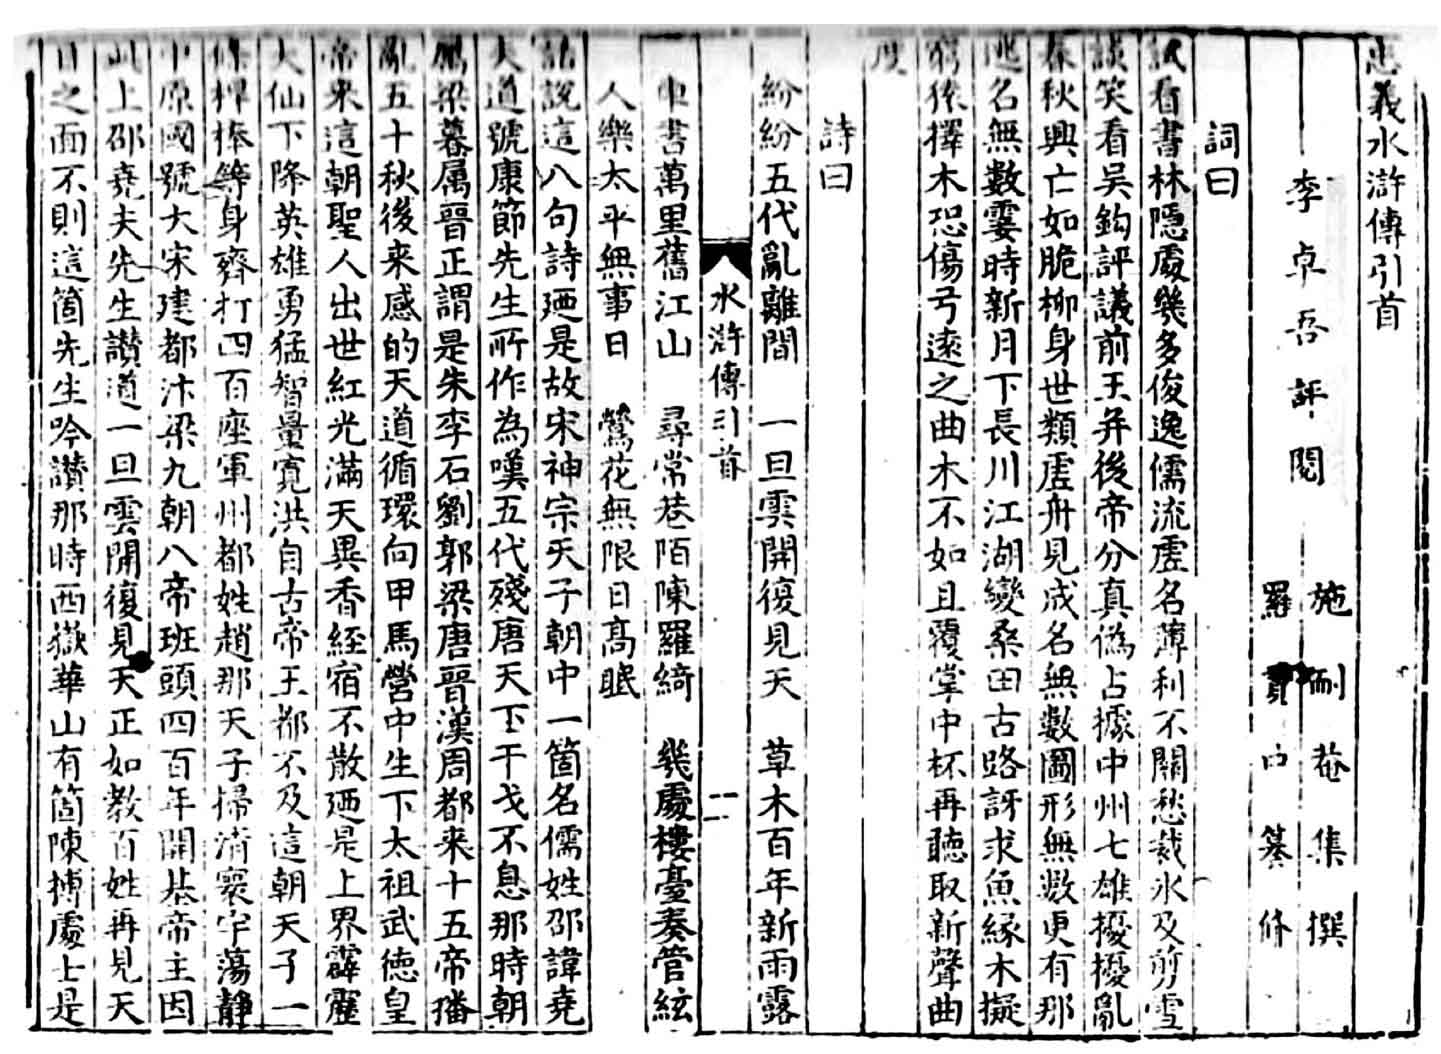 忠義水滸傳引首
李卓吾評閱
施耐菴集撰
羅貫中纂修
詞曰
試看書林隱處幾多俊逸儒流虛名薄利不關愁裁冰及剪雪
談笑看吳鈎評議前王并後帝分真偽占據中州七雄擾擾亂
春秋興亡如脆柳身世類虛舟見成名無數圖形無數更有那
逃名無數霎時新月下長川江湖變桑田古路訝求魚緣木擬
窮猿擇木恐傷弓遠之曲木不如且覆掌中杯再聽取新聲曲
度
詩曰
紛紛五代亂離間 一旦雲開復見天 草木百年新雨露
水滸傳引首 一
車書萬里舊江山 尋常巷陌陳羅綺 幾處樓臺奏管絃
人樂太平無事日 鶯花無限日高眠
話說這八句詩廼是故宋神宗天子朝中一箇名儒姓邵諱堯
夫道號康節先生所作為嘆五代殘唐天下干戈不息那時朝
屬梁暮属晉正謂是朱李石劉郭梁唐晉漢周都来十五帝播
亂五十秋後来感的天道循環向甲馬營中生下太祖武德皇
帝来這朝聖人出世紅光滿天異香經宿不散廼是上界霹靂
大仙下降英雄勇猛智量寬洪自古帝王都不及這朝天子一
條桿棒等身齊打四百座軍州都姓趙那天子掃清寰宇蕩靜
中原國號大宋建都汴梁九朝八帝班頭四百年開基帝主因
此上邵堯夫先生讚道一旦雲開復見天正如教百姓再見天
日之面不則這箇先生吟讚那時西嶽華山有箇陳摶處士是